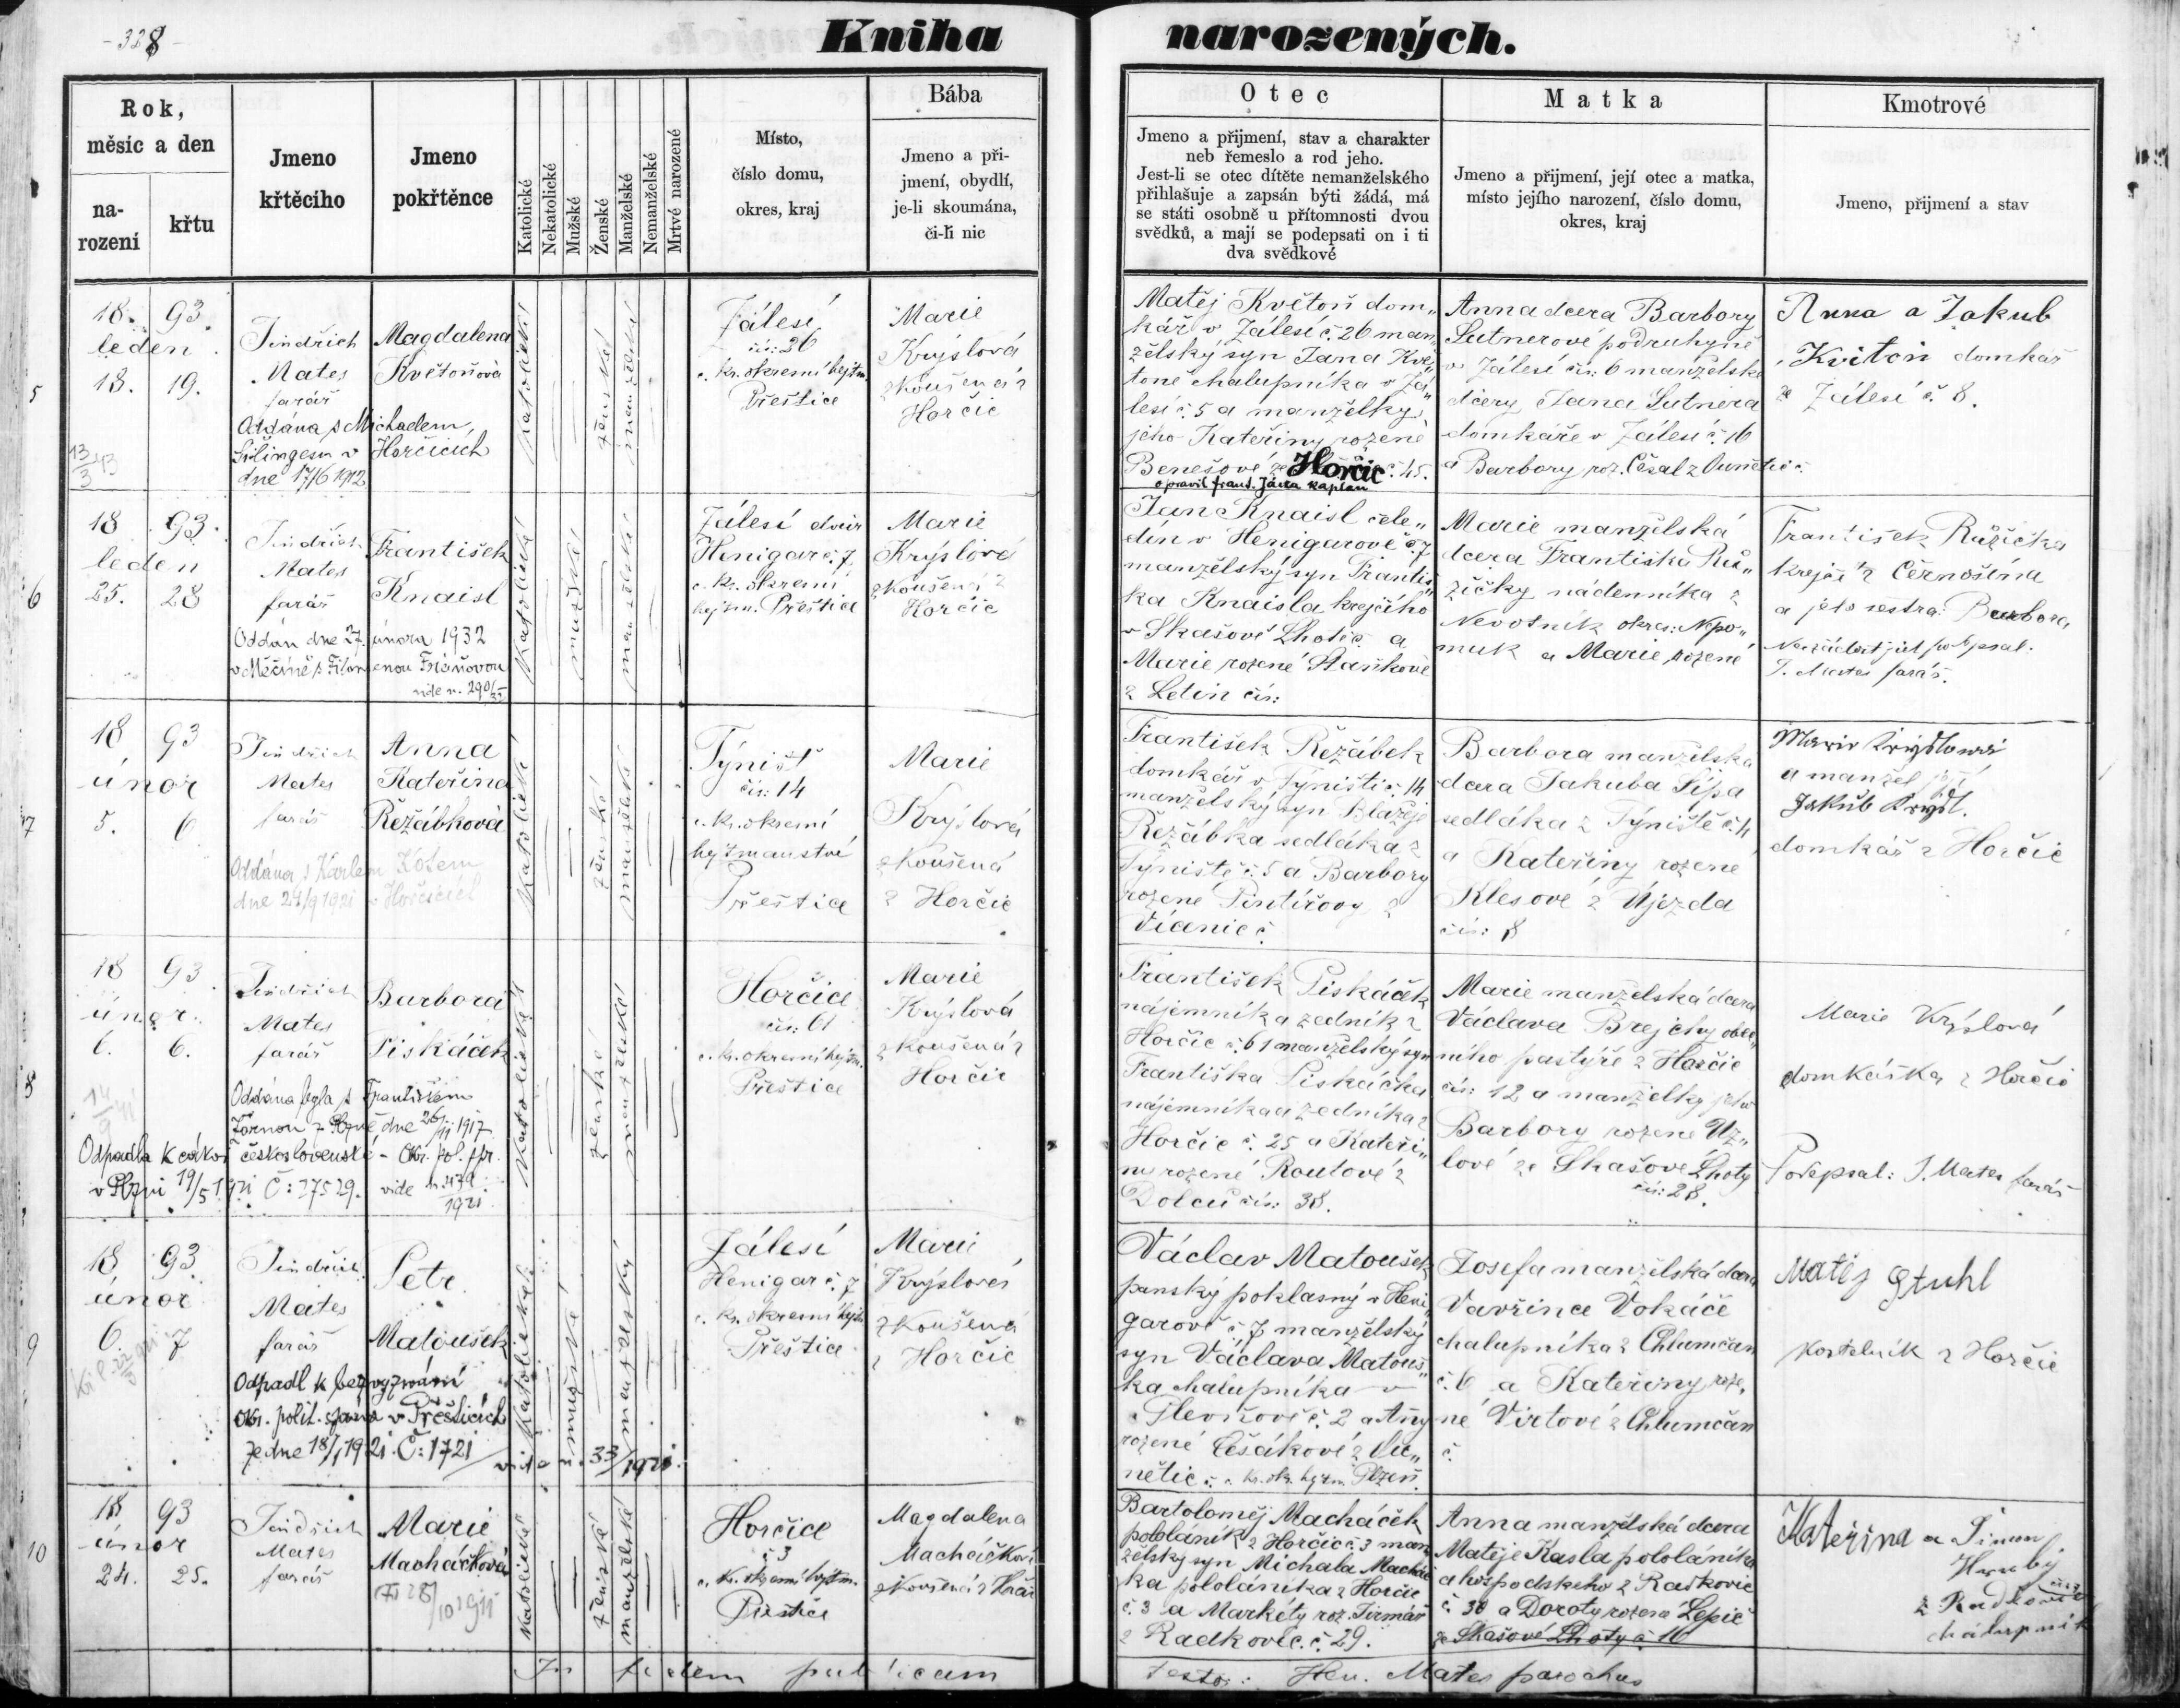 - 328 -
Kniha narozených.
Rok,
měsíc a den
na-
rození
křtu
Jmeno
křtěcího
Jmeno
pokřtěnce
Katolické
Nekatolické
Mužské
Ženské
Manželské
Nemanželské
Mrtvé narozené
Místo,
číslo domu,
okres, kraj
Bába
Jmeno a při-
jmení, obydlí,
je-li skoumána,
či-li nic
Otec
Jmeno a přijmení, stav a charakter
neb řemeslo a rod jeho.
Jest-li se otec dítěte nemanželského
přihlašuje a zapsán býti žádá, má
se státi osobně u přítomnosti dvou
svědků, a mají se podepsati on i ti
dva svědkové
Matka
Jmeno a přijmení, její otec a matka,
místo jejího narození, číslo domu,
okres, kraj
Kmotrové
Jmeno, přijmení a stav
5
18. 93.
leden.
18. 19.
13/3 43
Jindřich
Mates
farář
Magdalena
Květoňová
Oddána s Michadem
Šilingem v Horčicích
dne 17/6 1912
katolické
ženské
manželské
Zálesí
čís: 26
c. kr. okresní hejtm.
Přeštice
Marie
Krýslová
zkoušená z
Horčic
Matěj Květoň dom„
kář v Zálesí č. 26 man„
želský syn Jana Kvě„
toně chalupníka v Zá„
lesí č. 5 a manželky
jeho Kateřiny rozené
Benešové ze Horčic č. 45.
opravil frant. Jáera kaplan
Anna dcera Barbory
Sutnerové podruhyně
v Zálesí čís: 6 manželské
dcery Jana Sutnera
domkáře v Zálesí č. 16
a Barbory roz. Češal z Dunětic č.
Anna a Jakub
Kvitoň domkář
ze Zálesí č. 8.
6
18 93.
leden
25. 28
Jindřich
Mates
farář
František
Knaisl
Oddán dne 27. února 1932
v Měčíně s Filomenou Fránovou
vide n. 290/32
Katolické
mužské
manželské
Zálesí dvůr
Henigar č. 7
c. kr. okresní
hejtm. Přeštice
Marie
Krýslová
zkoušená z
Horčic
Jan Knaisl čele„
dín v Henigarově č. 7
manželský syn Františ„
ka Knaisla krejčího
v Skašově Lhotě č. a
Marie rozené Staňkové
z Letin čís:
Marie manželská
dcera Františka Rů„
žičky nádenníka z
Nevotník okres: Nepo„
muk a Marie rozené
František Růžička
krejčí z Černošína
a jeho sestra: Barbora
J. Mates farář.
7
18 93
únor
5. 6
Jindřich
Mates
farář
Anna
Kateřina
Řežábková
Oddána s Karlem Kotem
dne 24/9 1921 v Horčicích
Katolické
ženské
manželské
Týnišť
čís: 14
c. kr. okresní
hejtmanství
Přeštice
Marie
Krýslová
zkoušená
z Horčic
František Řežábek
domkář v Týništi č. 14
manželský syn Blažeje
Řežábka sedláka z
Týniště č. 5 a Barbory
rozené Pintířovy z
Vícenic č.
Barbora manželská
dcera Jakuba Šípa
sedláka z Týniště č. 4
a Kateřiny rozené
Klesové z Újezda
čís: 8
Marie Krýslová
a manžel její
Jakub Krýsl.
domkář z Horčic
8
18 93.
únor.
6. 6.
14/9 41
Jindřich
Mates
farář
Barbora
Piskáček
Oddána byla s Františkem
Žornou z Plzně dne 26/11 1917
Odpadla k církvi československé - Okr. pol. spr.
v Plzni 19/5 1921 Č: 27529. vide n. 479/1921
Katolické
ženské
manželské
Horčice
čís: 61
c. kr. okresní hejtm.
Přeštice
Marie
Krýslová
zkoušená z
Horčic
František Piskáček
nájemník a zedník z
Horčic č. 61 manželský syn
Františka Piskáčka
nájemníka a zedníka z
Horčic č. 25 a Kateři„
ny rozené Routové z
Dolců čís: 38.
Marie manželská dcera
Václava Brejchy obec„
ního pastýře z Horčic
čís: 12 a manželky jeho
Barbory rozené Uz„
lové ze Skašové Lhoty
čís: 28.
Marie Krýslová
domkářka z Horčic
Podepsal: J. Mates farář
9
18 93
únor
6. 7
Jindřich
Mates
farář
Petr
Matoušek
Odpadl k bezvyznání
Okr. polit. správa v Přešticích
ze dne 18/1 1921 Č: 1721 vide n. 33/1921.
Katolické
mužské
manželský
Zálesí
Henigar č. 7
c. kr. okresní hejtm.
Přeštice
Marie
Krýslová
zkoušená
z Horčic
Václav Matoušek
panský poklasný v Heni„
garově č. 7 manželský
syn Václava Matouš„
ka chalupníka v
Plevňově č. 2 a Anny
rozené Češákové z Du„
nětic č. c. kr. okr. hejtm. Plzeň.
Josefa manželská dcera
Vavřince Vokáče
chalupníka z Chlumčan
č. 6 a Kateřiny roze„
né Virtové z Chlumčan
č.
Matěj Stuhl
kostelník z Horčic
10
18 93
únor
24. 25.
Jindřich
Mates
farář
Marie
Macháčková
Katolické
ženské
manželské
Horčice
č 3
c. kr. okresní hejtm.
Přeštice
Magdalena
Macháčková
zkoušená z Horčic
Bartoloměj Macháček
pololáník z Horčic č. 3 man„
želský syn Michala Macháč„
ka pololáníka z Horčic
č. 3 a Markéty roz. Jirmář
z Radkovic č. 29.
Anna manželská dcera
Matěje Kasla pololáníka
a hospodského z Radkovic
č. 38 a Doroty rozená Lepič
ze Skašové Lhoty č. 16
Kateřina a Šimon
Hrubý
z Radkovic
chalupník
In fidem publicam
testor: Hen. Mates parochus